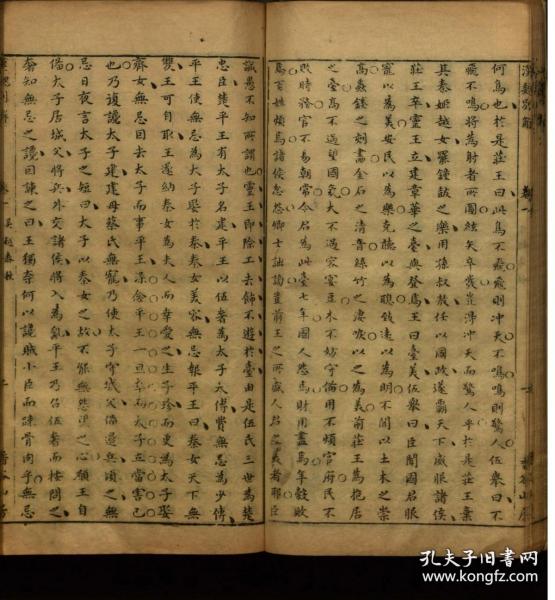 漢魏別解 卷一
何鳥也於是莊王曰此鳥不飛飛則沖天不鳴鳴則驚人伍舉曰不
飛不鳴將為射者所圖絃矢卒發豈得沖天而驚人乎於是莊王棄
其秦姬越女罷鐘鼓之樂用孫叔敖任以國政遂霸天下威服諸侯
莊王卒靈王立建章華之臺與登焉王曰臺美伍舉曰臣聞國君服
寵以為美安民以為樂克聽以為聰致遠以為明不聞以土木之崇
高蟲鏤之刻畫金石之清音絲竹之凄唳以之為美前莊王為抱居
之臺高不過望國氛大不過容宴豆木不妨守備用不煩官府民不
敗時務官不易朝常今君為此臺七年國人怨焉財用盡焉年穀敗
焉百姓煩焉諸侯忿怨卿士訕謗豈前王之所盛人君之美者耶臣
誠愚不知所謂也靈王即除工去飾不遊於臺由是伍氏三世為楚
忠臣楚平王有太子名建平王以伍奢為太子太傅費無忌為少傅
平王使無忌為太子娶於秦秦女美容無忌報平王曰秦女天下無
雙王可自取王遂納秦女為夫人而幸愛之生子珍而更為太子娶
齊女無忌因去太子而事平王深念平王一旦卒而太子立當害己
也乃復讒太子建建母蔡氏無寵乃使太子守城父備邊兵頃之無
忌日夜言太子之短曰太子以秦女之故不能無怨望之心願王自
備太子居城父將兵外交諸侯將入為亂平王乃召伍奢而按問之
奢知無忌之讒因諫之曰王獨奈何以讒賊小臣而疎骨肉乎無忌
卷一 吳越春秋
香谷山房
孔夫子旧书网
www.kongfz.com